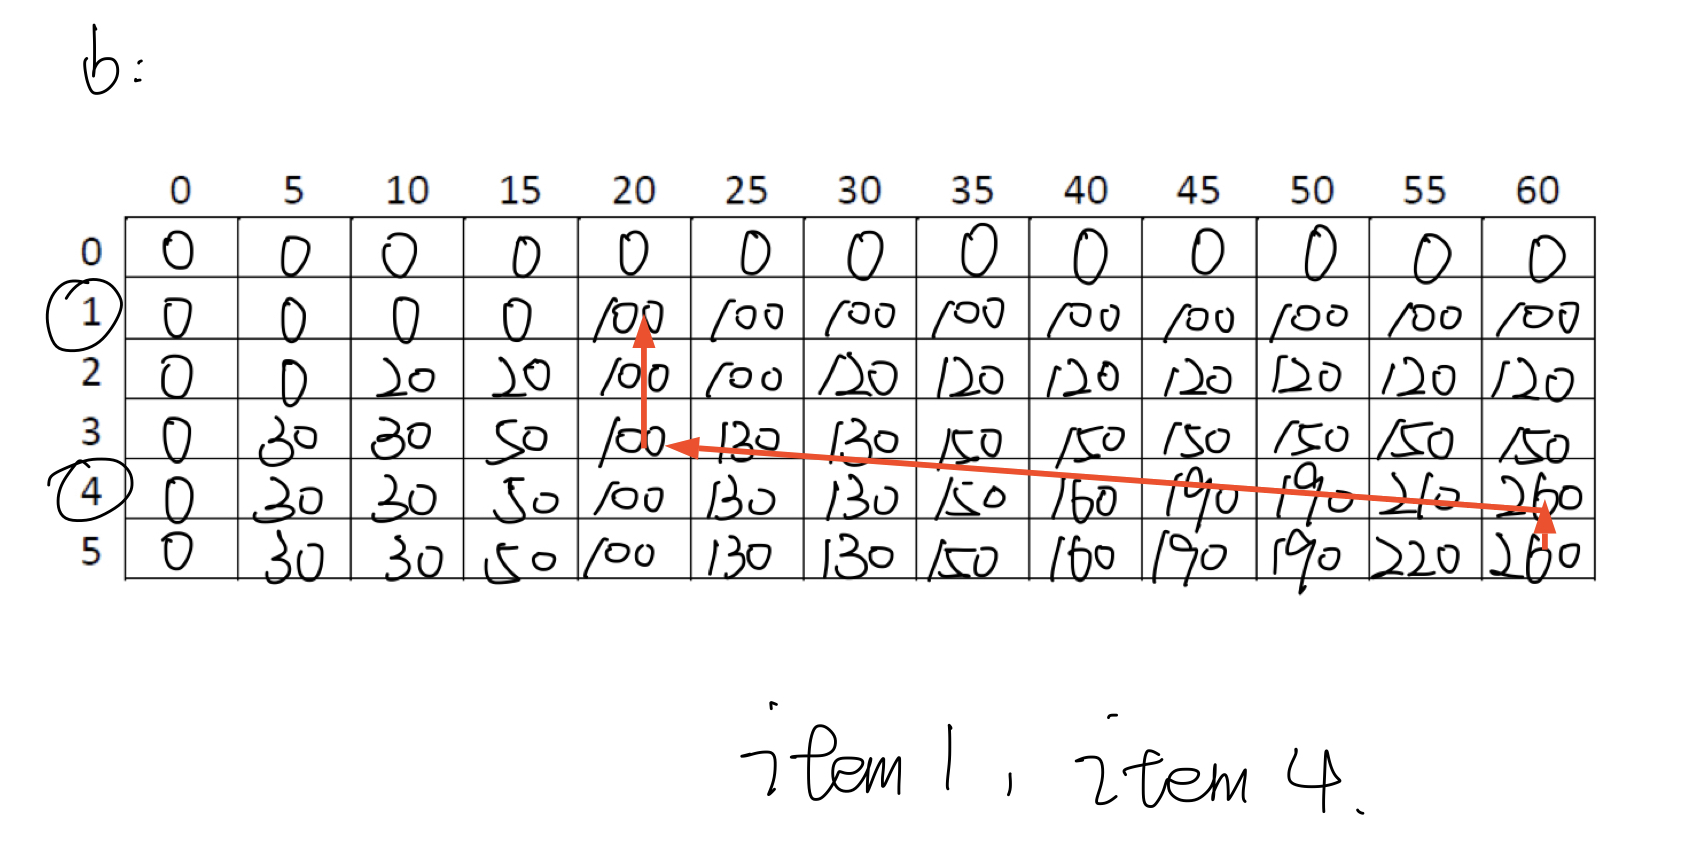 b:
0 5 10 15 20 25 30 35 40 45 50 55 60
0 0 0 0 0 0 0 0 0 0 0 0 0 0
1 0 0 0 0 100 100 100 100 100 100 100 100 100
2 0 0 20 20 100 100 120 120 120 120 120 120 120
3 0 30 30 50 100 130 130 150 150 150 150 150 150
4 0 30 30 50 100 130 130 150 160 190 190 210 260
5 0 30 30 50 100 130 130 150 160 190 190 220 260
item 1, item 4.